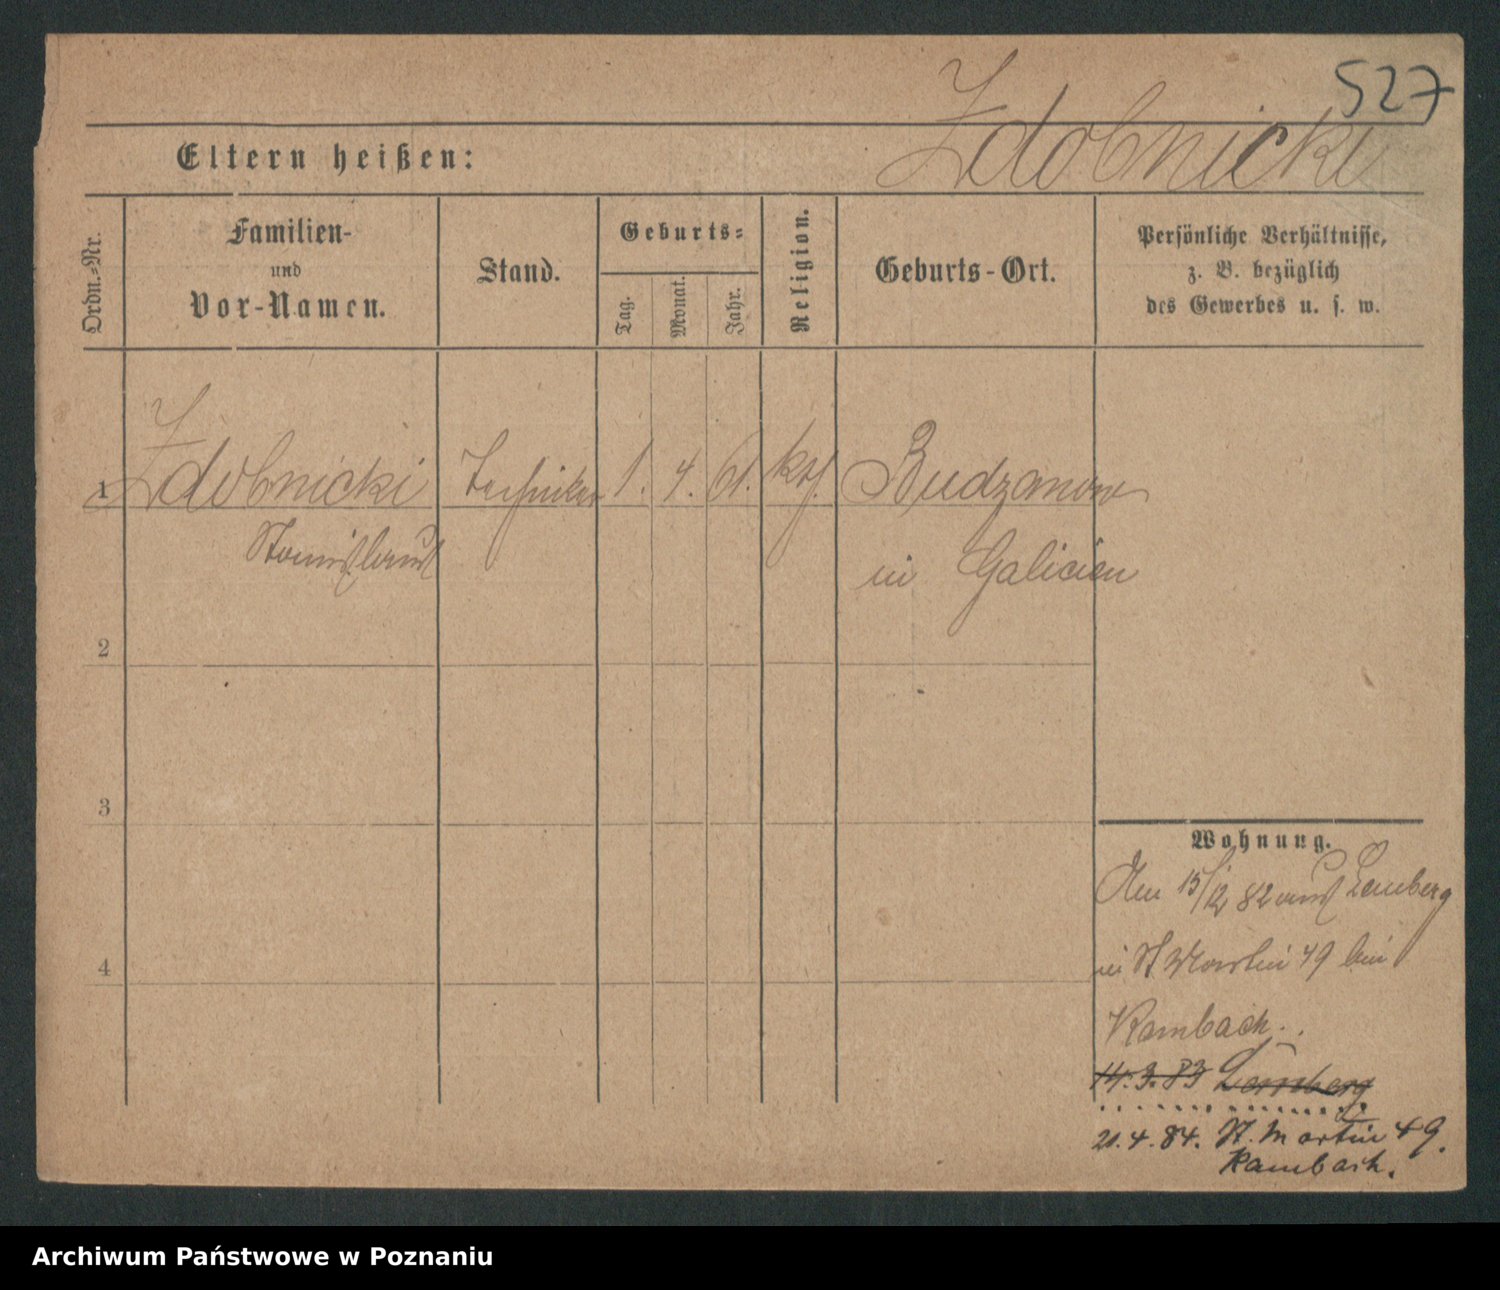 527
Zdobnicki
Eltern heißen:
Ordn.-Nr.
Familien-
und
Vor-Namen.
Stand.
Geburts-
Tag.
Monat.
Jahr.
Religion.
Geburts-Ort.
Persönliche Verhältnisse,
z. B. bezüglich
des Gewerbes u. s. w.
1 Zdobnicki Techniker 1. 4. 61. kth. Budzanow
Stanislaus in Galicien
2
3
4
Wohnung.
Am 15/12 82 aus Lemberg
in St Martin 49 bei
Rambach.
14.3.83 Lemberg
21.4.84. St. Martin 49.
Rambach.
Archiwum Państwowe w Poznaniu